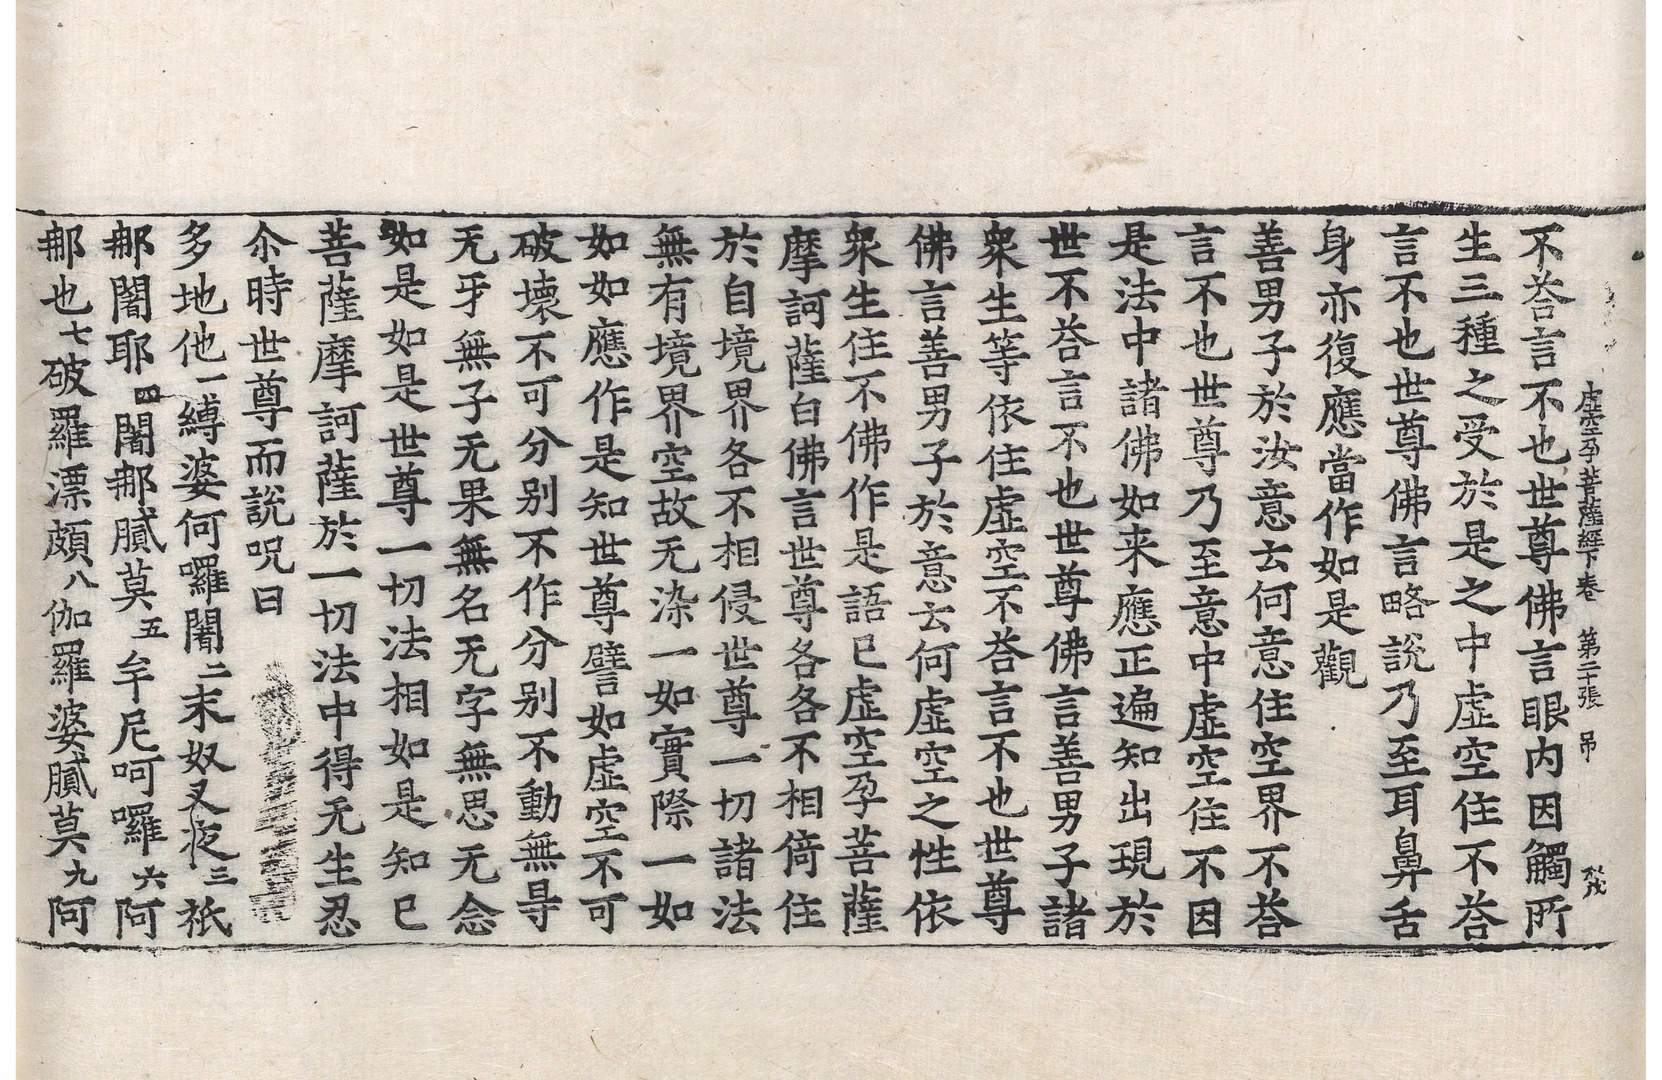 虛空孕菩薩經下卷 第二十張 吊
不荅言不也世尊佛言眼内因觸所
生三種之受於是之中虛空住不荅
言不也世尊佛言略說乃至耳鼻舌
身亦復應當作如是觀
善男子於汝意云何意住空界不荅
言不也世尊乃至意中虛空住不因
是法中諸佛如来應正遍知出現於
世不荅言不也世尊佛言善男子諸
衆生等依住虛空不荅言不也世尊
佛言善男子於意云何虛空之性依
衆生住不佛作是語已虛空孕菩薩
摩訶薩白佛言世尊各各不相倚住
於自境界各不相侵世尊一切諸法
無有境界空故无染一如實際一如
如如應作是知世尊譬如虛空不可
破壞不可分别不作分别不動無㝵
无牙無子无果無名无字無思无念
如是如是世尊一切法相如是知已
菩薩摩訶薩於一切法中得无生忍
尒時世尊而說呪曰
多地他一縛婆何囉闍二末奴叉夜三祇
那闍耶四闍那膩莫五牟尼呵囉六阿
那也七破羅漂頗八伽羅婆膩莫九阿